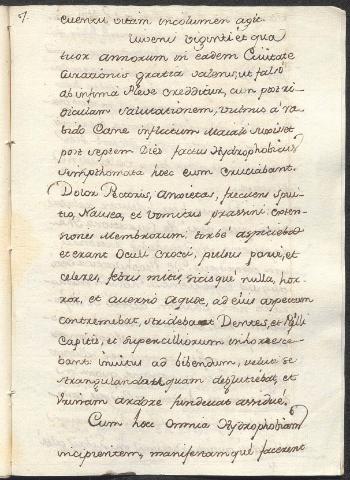 57.
eventu vitam incolumem agit.
Iuvenis viginti et qua
tuor annorum in eadem Civitate
Curationis gratia salens, ut falso
ab infima Pleve creditur, cum
salutationem, vulnus a ra
bido Cane inflictum
post septem Dies factus Hydrophobicus
simpthomata haec eum cruciabant.
Dolor Pectoris, anxietas, frecuens spui
tio, Nausea, et vomitus prassini exten
siones Membrorum torbe aspiciebat
et erant Oculi Crocei, pulsus parvi, et
celeres, febris mitis, sitisque nulla, hor
ror, et aversio Aquae, ad eius aspectum
contremebat, stridebant Dentes, et Pilli
Capitis, et Superciliorum inhorresce
bant: invitus ad bibendum, velut se
strangulandam quam deglutiebat, et
Urinam ardore fundebat assidue.
Cum haec Omnia Hydrophobiam
incipientem, manifestamque facerent